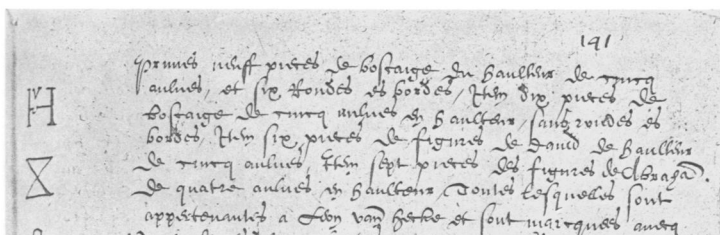 191
Prmes neuff pieces de boscaige du haulteur de cincq
aulnes, et six Rondes es bordes, Item dix pieces de
boscaige de cincq aulnes en haulteur, sans rondes es
bordes, Item six pieces de figures de david de haulteur
de cincq aulnes, Item sept pieces des figures de Abraham.
de quatre aulnes, en haulteur, Toutes lesquelles sont
appertenantes a Leon van Hecke et sont marcquees avecq